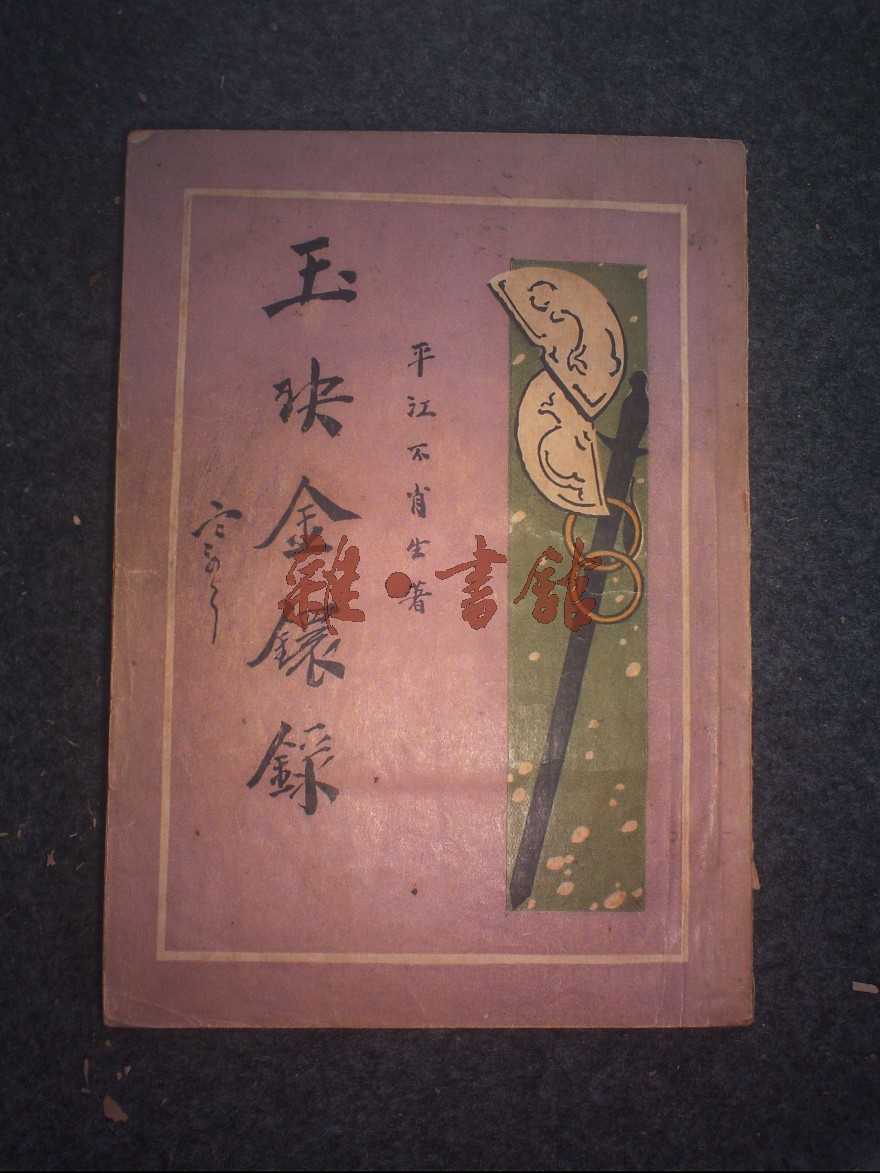 平江不肖生著
玉玦金鐶錄
雜•書舘